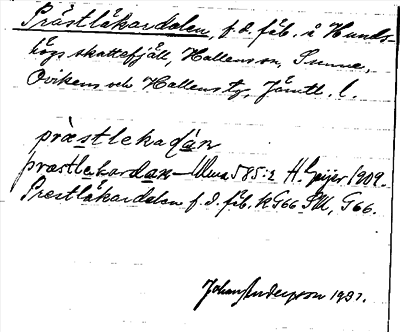 Prästläkardalen, f.d. fäb. å Hunds-
högs skattefjäll, Hallens sn, Sunne,
Ovikens och Hallens tg, Jämtl. l.
prästlekadán
præstlekardan — Ulma 585:2 H. Geijer 1909.
Prestläkardalen f.d. fäb. k G66 SW, G66.
Johan Anderson 1937.